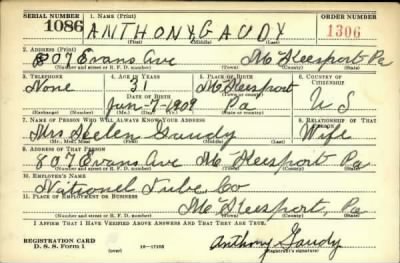 SERIAL NUMBER 1. NAME (Print) ORDER NUMBER
1086 ANTHONY GAUDY 1306
(First) (Middle) (Last)
2. ADDRESS (Print)
807 Evans Ave McKeesport Pa
(Number and street or R. F. D. number) (Town) (County) (State)
3. TELEPHONE 4. AGE IN YEARS 5. PLACE OF BIRTH 6. COUNTRY OF CITIZENSHIP
None 31 McKeesport
DATE OF BIRTH
Jan-7-1909 Pa U S
(Exchange) (Number) (Mo.) (Day) (Yr.) (State or country)
7. NAME OF PERSON WHO WILL ALWAYS KNOW YOUR ADDRESS 8. RELATIONSHIP OF THAT PERSON
Mrs Helen Gaudy Wife
(Mr., Mrs., Miss) (First) (Middle) (Last)
9. ADDRESS OF THAT PERSON
807 Evans Ave McKeesport Pa
(Number and street or R. F. D. number) (Town) (County) (State)
10. EMPLOYER'S NAME
National Tube Co
11. PLACE OF EMPLOYMENT OR BUSINESS
McKeesport, Pa
(Number and street or R. F. D. number) (Town) (County) (State)
I AFFIRM THAT I HAVE VERIFIED ABOVE ANSWERS AND THAT THEY ARE TRUE.
REGISTRATION CARD
D. S. S. Form 1 Anthony Gaudy
(Registrant's signature)